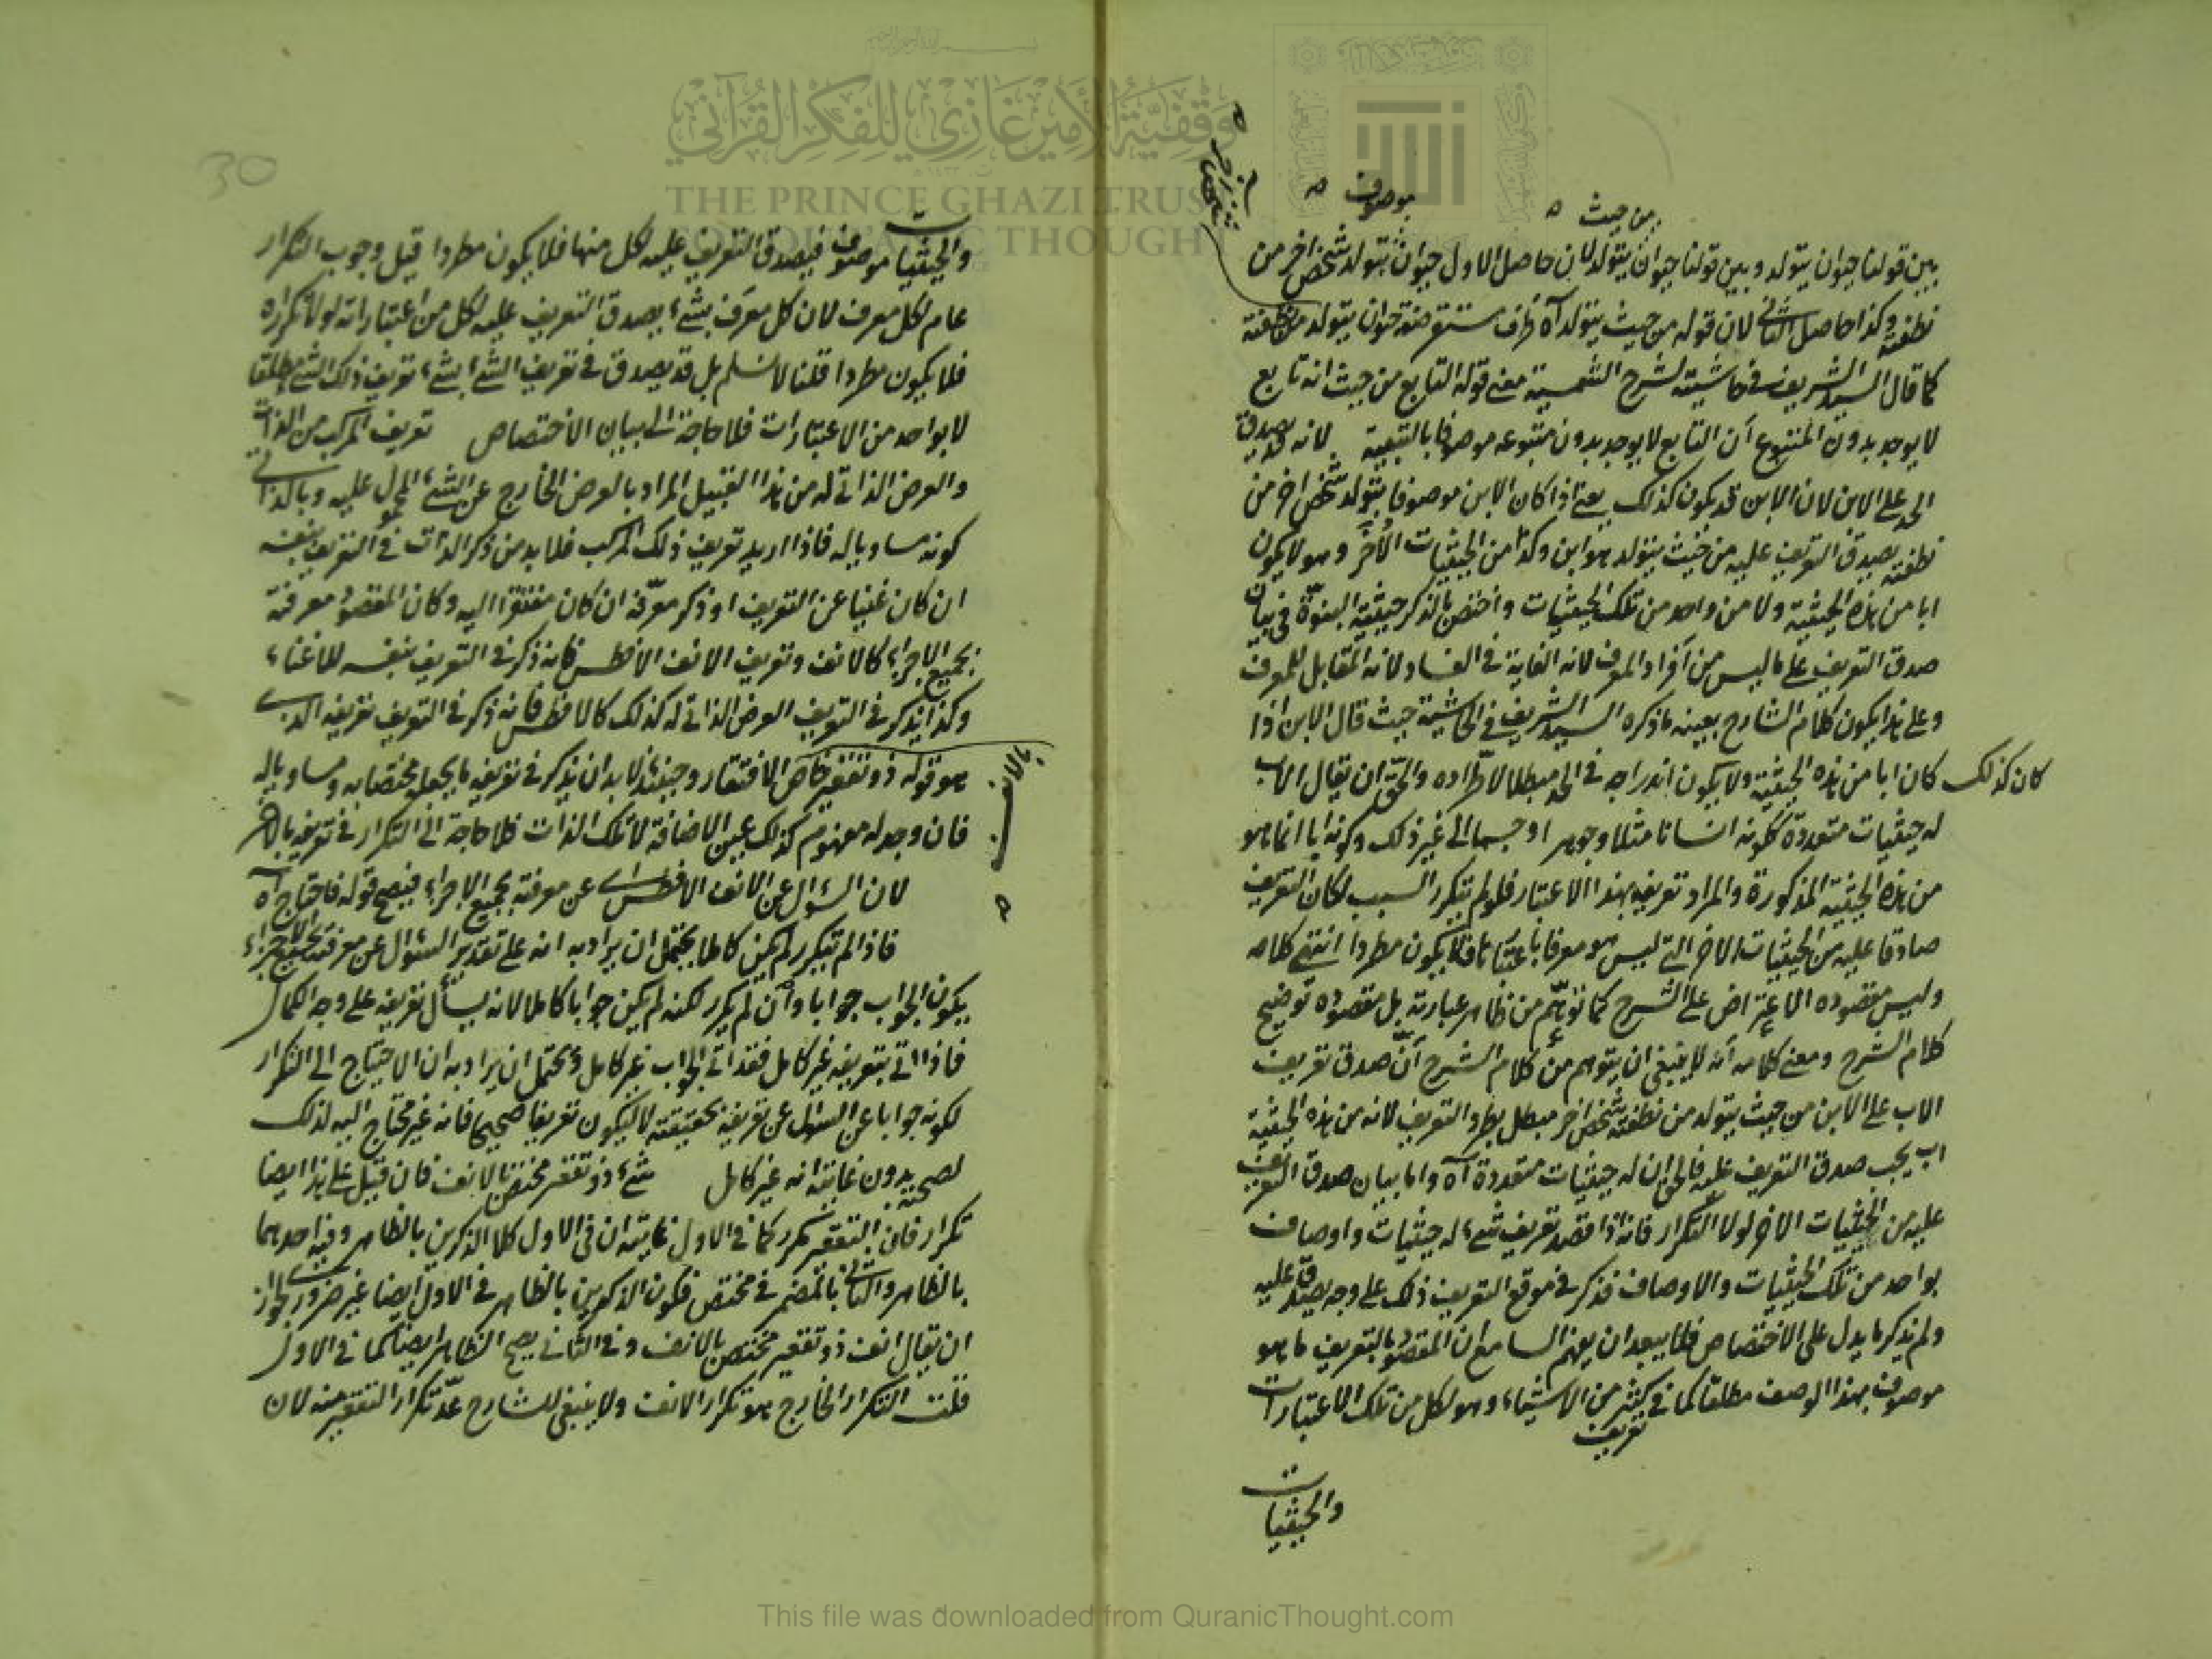 من حيث
موصوف
بين قولنا حيوان يتولد وبين قولنا حيوان يتولد لان حاصل الاول حيوان يتولد شخص اخر من
نطفته وكذا حاصل الثاني لان قوله من حيث يتولد آه ظرف مستقر صفة حيوان يتولد من نطفته
كما قال السيد الشريف في حاشيته لشرح الشمسية معنى قوله التابع من حيث انه تابع
لا يوجد بدون المتبوع ان التابع لا يوجد بدون متبوعه موصوفا بالتبعية لانه قد يصدق
الحد على الابن لان الابن قد يكون كذلك يعني اذا كان الابن موصوفا بتولد شخص اخر من
نطفته يصدق التعريف عليه من حيث يتولد هو ابن وكذا من الحيثيات الأخر وهو لا يكون
ابا من هذه الحيثية ولا من واحد من تلك الحيثيات واختص بالذكر حيثية البنوة في بيان
صدق التعريف على ما ليس من افراد المعرف لانه الغاية في الفساد ولانه المقابل للمعرف
وعلى هذا يكون كلام الشارح بعينه ما ذكره السيد الشريف في الحاشية حيث قال الابن اذا
كان كذلك كان ابا من هذه الحيثية ولا يكون اندراجه في الحد مبطلا لاطراده والحق ان يقال الاب
له حيثيات متعددة ككونه انسانا مثلا وجوهر او جسما الى غير ذلك وكونه ابا انما هو
من هذه الحيثية المذكورة والمراد تعريفه بهذا الاعتبار فلو لم يتكرر السبب لكان التعريف
صادقا عليه من الحيثيات الاخر التي ليس هو معرفا باعتبارها فلا يكون مطردا انتهى كلامه
وليس مقصوده الاعتراض على الشرح كما توهم من ظاهر عبارته بل مقصوده توضيح
كلام الشرح ومعنى كلامه انه لا ينبغي ان يتوهم من كلام الشرح ان صدق تعريف
الاب على الابن من حيث يتولد من نطفته شخص اخر مبطل بطرد التعريف لانه من هذه الحيثية
اب يجب صدق التعريف عليه فالحق ان له حيثيات متعددة آه واما بيان صدق التعريف
عليه من الحيثيات الاخر لولا التكرار فانه اذا قصد تعريف شيء له حيثيات واوصاف
بواحد من تلك الحيثيات والاوصاف فذكر في موقع التعريف ذلك على وجه يصدق عليه
ولم يذكر ما يدل على الاختصاص فلا يبعد ان يفهم السامع ان المقصود بالتعريف ما هو
موصوف بهذا الوصف مطلقا كما في كثير من الاشياء وهو لكل من تلك الاعتبارات
تعريف
والحيثيات
30
والحيثيات موصوف فيصدق التعريف عليه لكل منها فلا يكون مطردا قيل وجوب التكرار
عام لكل معرف لان كل معرف بشيء يصدق التعريف عليه لكل من اعتباراته لولا تكراره
فلا يكون مطردا قلنا لا نسلم بل قد يصدق في تعريف الشيء بشيء تعريف ذلك الشيء مطلقا
لا بواحد من الاعتبارات فلا حاجة الى بيان الاختصاص تعريف المركب من الذات
والعرض الذاتي له من هذا القبيل المراد بالعرض الخارج عن الشيء المحمول عليه وبالذاتي
كونه مساويا له فاذا اريد تعريف ذلك المركب فلا بد من ذكر الذات في التعريف بنفسه
ان كان غنيا عن التعريف او ذكر معرفه ان كان مفتقرا اليه وكان المقصود معرفته
بجميع الاجزاء كالانف وتعريف الانف الافطس فانه ذكر في التعريف بنفسه للاغناء
وكذا يذكر في التعريف العرض الذاتي له كذلك كالافطس فانه ذكر في التعريف تعريفه الذي
هو قوله ذو تقعير خاص الافتقار وحينئذ لا بد ان يذكر في تعريفه ما يجعله مختصا به ومساويا له
بالانف
فان وجد له مفهوم كذلك عين الاضافة لا تلك الذات فلا حاجة الى التكرار في تعريفه بالامر
لان السؤال عن الانف الافطس اي عن معرفته بجميع الاجزاء فيصح قوله فاحتاج آه
فاذا لم يتكرر لم يكن كاملا يحتمل ان يراد به انه على تقدير السؤال عن معرفته بجميع الاجزاء
يكون الجواب جوابا وان لم يكرر لكنه لم يكن جوابا كاملا لانه يسأل تعريفه على وجه الكمال
فاذا اتى بتعريفه غير كامل فقد اتى الجواب غير كامل ويحتمل ان يراد به ان الاحتياج الى التكرار
لكونه جوابا عن السؤال عن تعريفه بحقيقته لا ليكون تعريفا صحيحا فانه غير محتاج اليه لذلك
لصحته بدون غايته انه غير كامل شيء ذو تقعير مختص بالانف فان قيل على هذا ايضا
تكرار فان التقعير مكرر كما في الاول غايته ان في الاول كلا الذكرين بالظاهر وفيه احدهما
بالظاهر والثاني بالمضمر في مختص فكون الذكرين بالظاهر في الاول ايضا غير ضروري لجواز
ان يقال انف ذو تقعير مختص بالانف وفي الثاني يصح الظاهر ايضا كما في الاول
قلت التكرار الخارج هو تكرار الانف ولا ينبغي للشارح عد تكرار التقعير منه لان
وقفية الأمير غازي للفكر القرآني
THE PRINCE GHAZI TRUST
FOR QUR'ANIC THOUGHT
This file was downloaded from QuranicThought.com